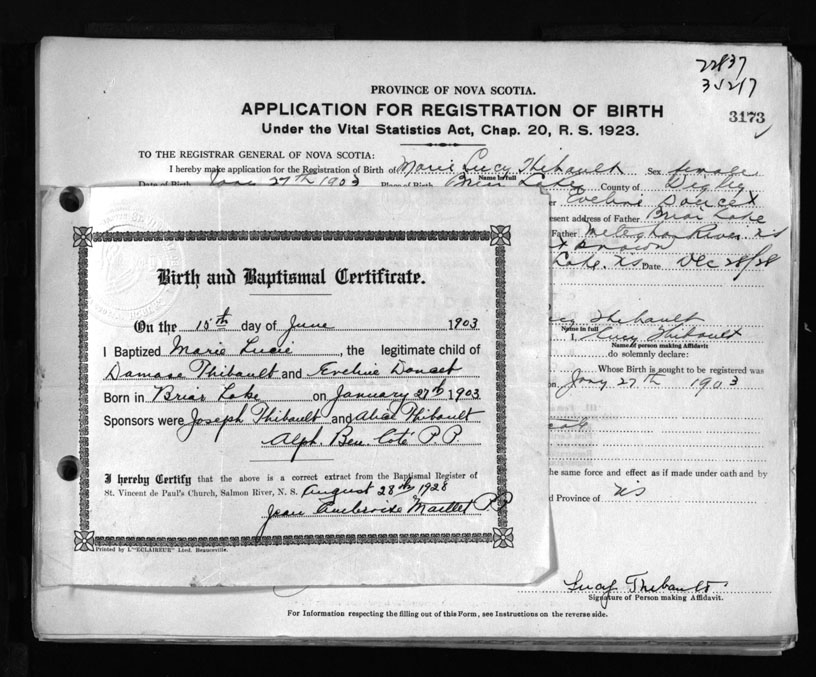 22837
35217
3173
PROVINCE OF NOVA SCOTIA.
APPLICATION FOR REGISTRATION OF BIRTH
Under the Vital Statistics Act, Chap. 20, R. S. 1923.
TO THE REGISTRAR GENERAL OF NOVA SCOTIA:
I hereby make application for the Registration of Birth of Marie Lucy Thibault Sex female
Name in full
Date of Birth 27th 1903 Place of Birth Briar Lake County of Digby
Eveline Doucet
esent address of Father Briar Lake
Father Meteghan River NS
known
Lake. NS Date Dec 28/28
Lucy Thibault
Name in full
I, Lucy Thibault
Name of person making Affidavit
do solemnly declare:
Whose Birth is sought to be registered was
on Jany 27th 1903
he same force and effect as if made under oath and by
d Province of NS
Lucy Thibault
Signature of Person making Affidavit.
For Information respecting the filling out of this Form, see Instructions on the reverse side.
Birth and Baptismal Certificate.
On the 15th day of June 1903
I Baptized Marie Lucie, the legitimate child of
Damase Thibault and Eveline Doucet
Born in Briar Lake on January 27th 1903
Sponsors were Joseph Thibault and Alice Thibault
Alph. Ben. Coté P.P.
I hereby Certify that the above is a correct extract from the Baptismal Register of
St. Vincent de Paul's Church, Salmon River, N. S. August 28th 1928
Jean Ambroise Maillet P.P.
Printed by L'"ECLAIREUR" Lted. Beauceville.